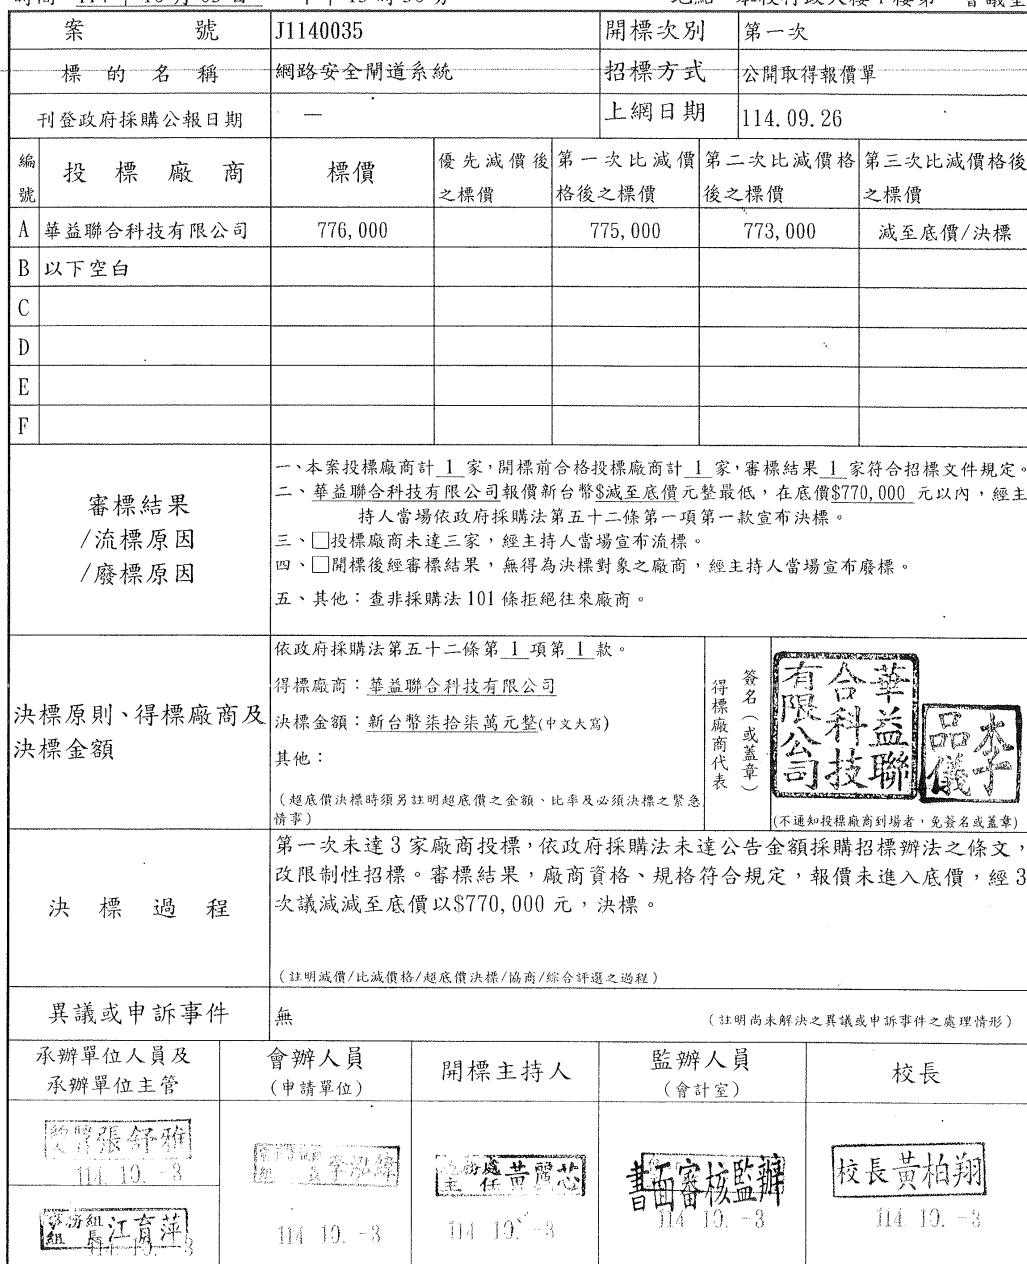 案號 J1140035 開標次別 第一次
標的名稱 網路安全閘道系統 招標方式 公開取得報價單
刊登政府採購公報日期 — 上網日期 114.09.26
編號 投標廠商 標價 優先減價後之標價 第一次比減價格後之標價 第二次比減價格後之標價 第三次比減價格後之標價
A 華益聯合科技有限公司 776,000 775,000 773,000 減至底價/決標
B 以下空白
C
D
E
F
審標結果
/流標原因
/廢標原因
一、本案投標廠商計 1 家，開標前合格投標廠商計 1 家，審標結果 1 家符合招標文件規定。
二、華益聯合科技有限公司報價新台幣$減至底價元整最低，在底價$770,000 元以內，經主
持人當場依政府採購法第五十二條第一項第一款宣布決標。
三、□投標廠商未達三家，經主持人當場宣布流標。
四、□開標後經審標結果，無得為決標對象之廠商，經主持人當場宣布廢標。
五、其他：查非採購法 101 條拒絕往來廠商。
決標原則、得標廠商及
決標金額
依政府採購法第五十二條第 1 項第 1 款。
得標廠商：華益聯合科技有限公司
決標金額：新台幣柒拾柒萬元整(中文大寫)
其他：
（超底價決標時須另註明超底價之金額、比率及必須決標之緊急
情事）
得標廠商代表
簽名（或蓋章）
華益聯
合科技
有限公司
李
品儀
(不通知投標廠商到場者，免簽名或蓋章)
決標過程
第一次未達 3 家廠商投標，依政府採購法未達公告金額採購招標辦法之條文，
改限制性招標。審標結果，廠商資格、規格符合規定，報價未進入底價，經 3
次議減減至底價以$770,000 元，決標。
（註明減價/比減價格/超底價決標/協商/綜合評選之過程）
異議或申訴事件 無 （註明尚未解決之異議或申訴事件之處理情形）
承辦單位人員及
承辦單位主管
會辦人員
（申請單位）
開標主持人
監辦人員
（會計室）
校長
張舒雅
114. 10. -3
江育萍
114. 10. -3
114 10. -3
主任 黃麗芯
114 10. -3
書面審核監辦
114 10. -3
校長黃柏翔
114. 10. -3